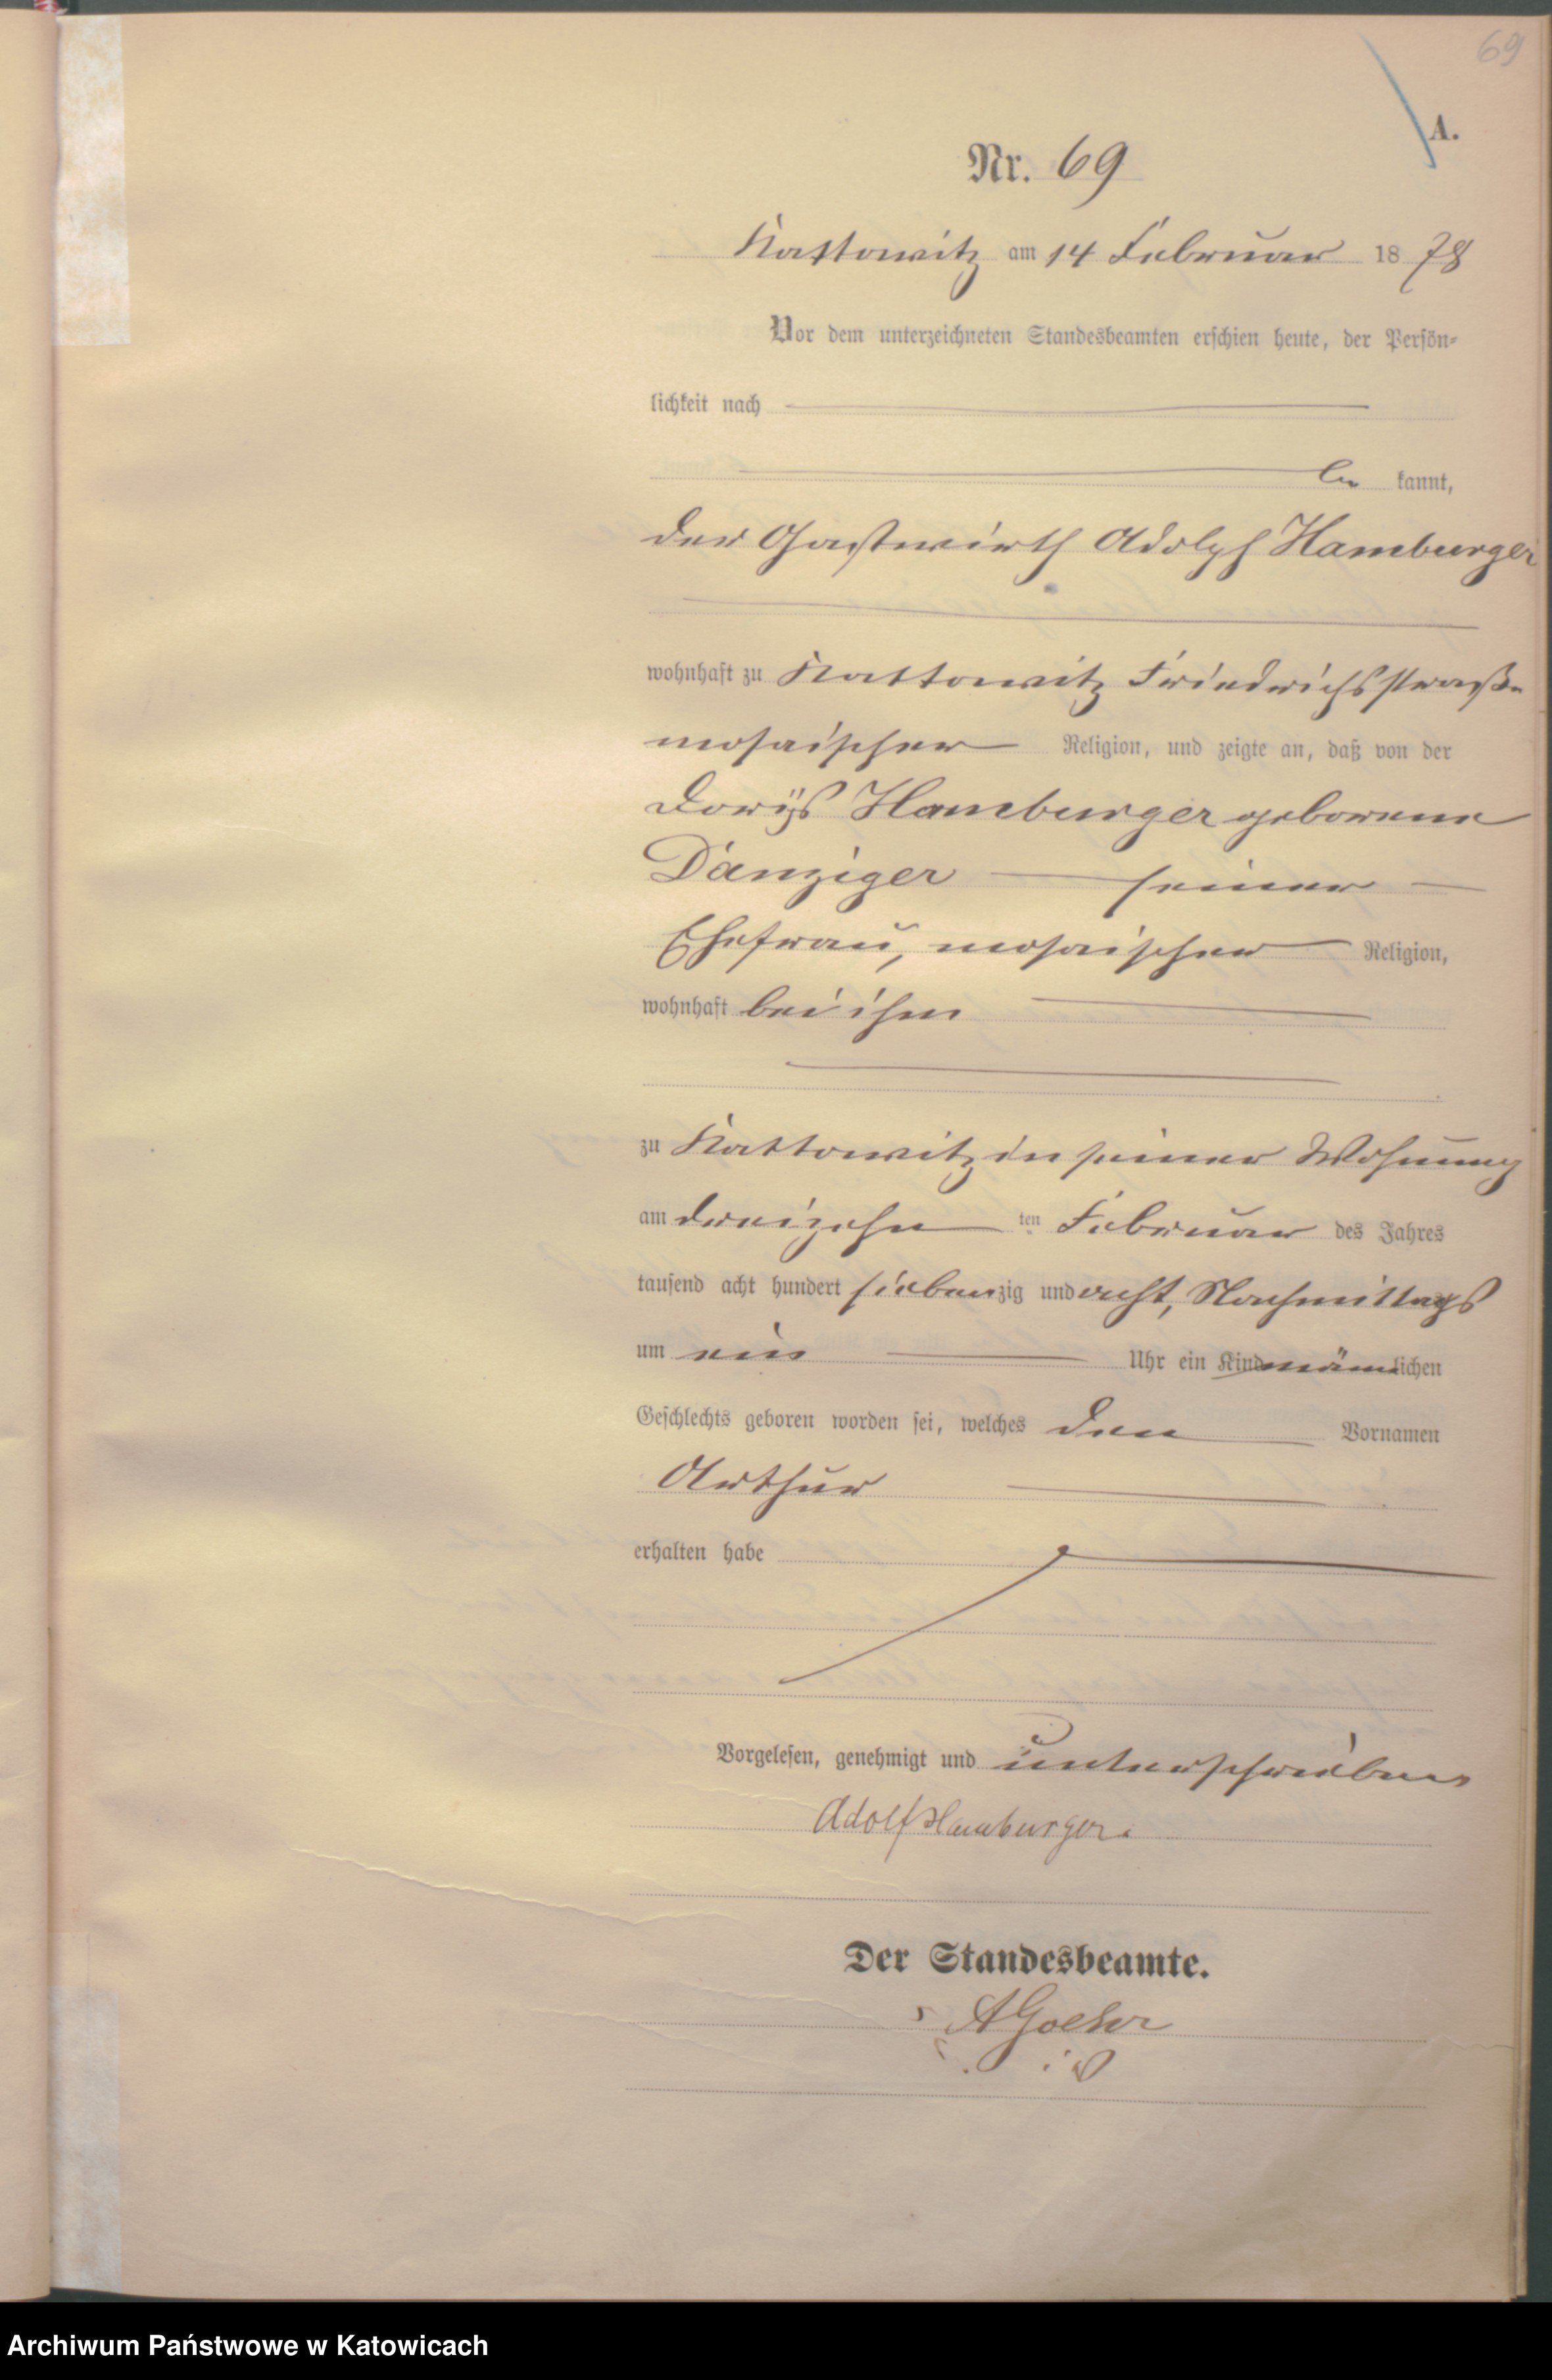 69
A.
Nr. 69
Kattowitz am 14 Februar 1878
Vor dem unterzeichneten Standesbeamten erschien heute, der Persön-
lichkeit nach
be kannt,
der Gastwirth Adolph Hamburger
wohnhaft zu Kattowitz Friedrichsstraße
mosaischer Religion, und zeigte an, daß von der
Dorijs Hamburger geborene
Danziger seiner
Ehefrau, mosaischer Religion,
wohnhaft bei ihm
zu Kattowitz in seiner Wohnung
am dreizehn ten Februar des Jahres
tausend acht hundert siebenzig und acht, Nachmittags
um ein Uhr ein Kind männlichen
Geschlechts geboren worden sei, welches den Vornamen
Arthur
erhalten habe
Vorgelesen, genehmigt und unterschrieben
Adolf Hamburger.
Der Standesbeamte.
Archiwum Państwowe w Katowicach